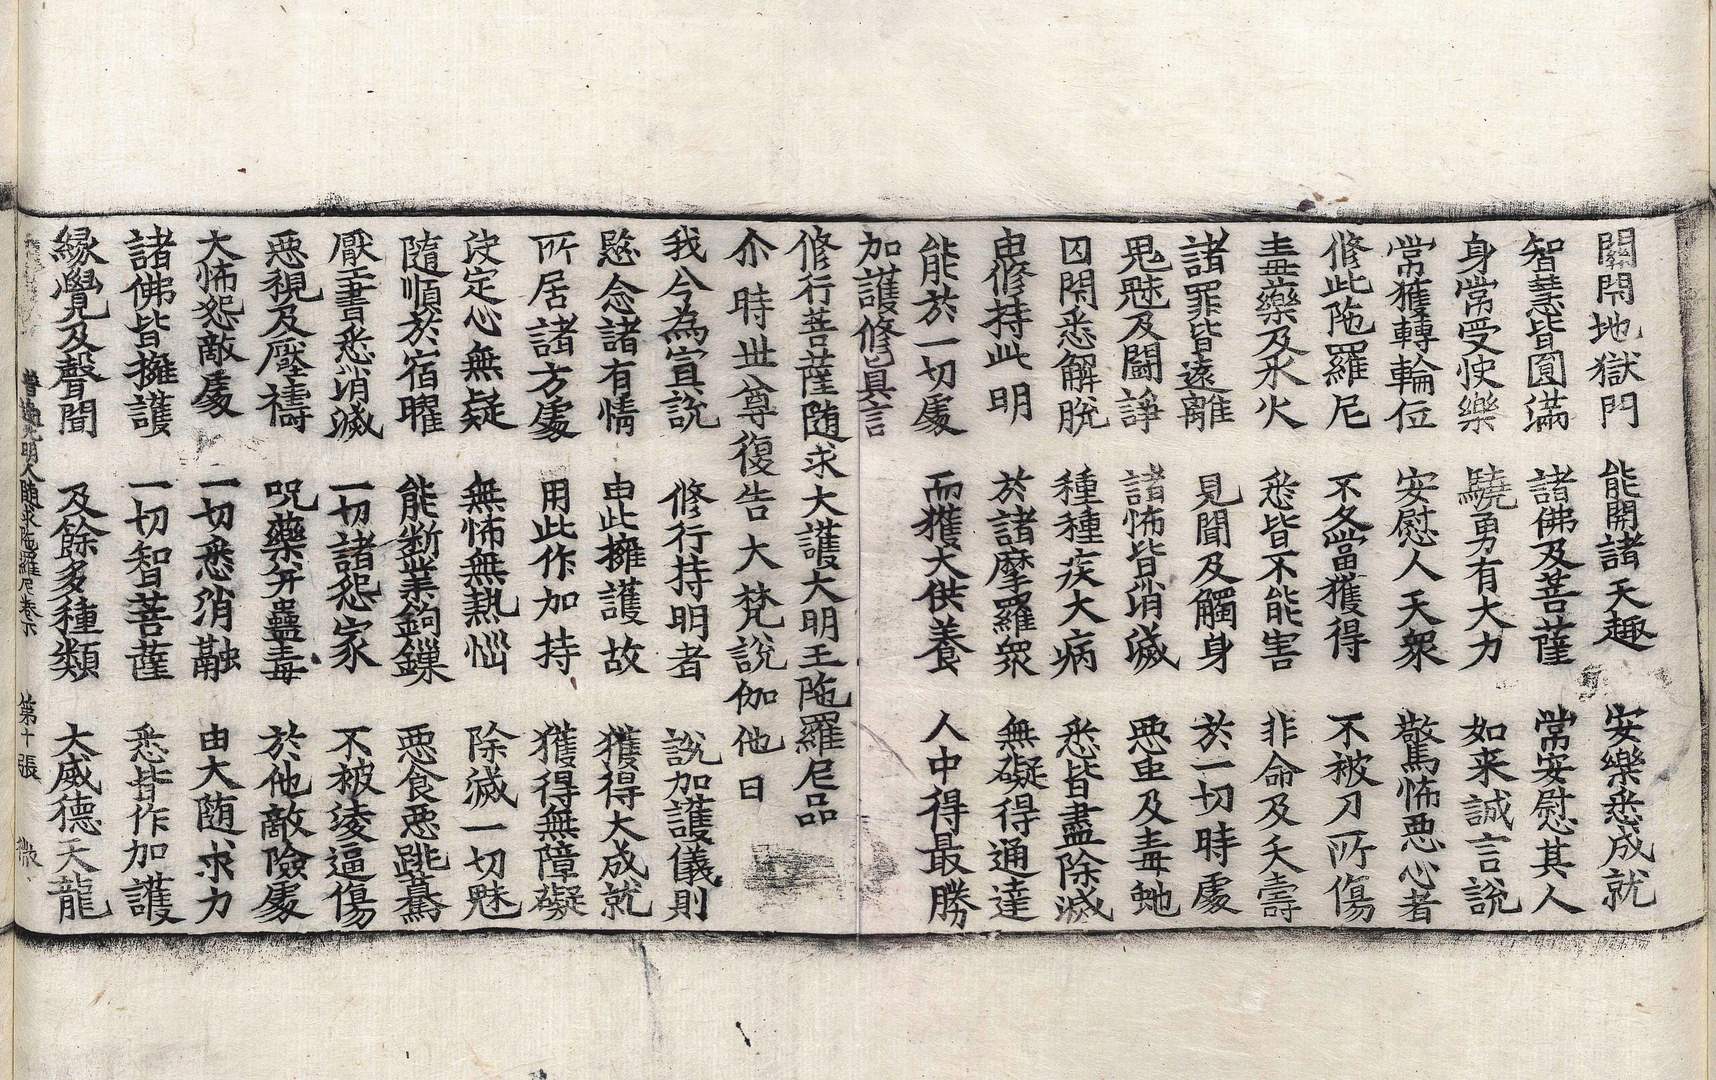 關閇地獄門 能開諸天趣 安樂悉成就
智慧皆圓滿 諸佛及菩薩 常安慰其人
身常受快樂 驍勇有大力 如来誠言說
常獲轉輪位 安慰人天衆 驚怖悪心者
修此陁羅尼 不久當獲得 不被刀所傷
毒藥及水火 悉皆不能害 非命及夭壽
諸罪皆遠離 見聞及觸身 於一切時處
鬼魅及闘諍 諸怖皆消滅 悪虫及毒虵
囚閇悉解脫 種種疾大病 悉皆盡除滅
由修持此明 於諸摩羅衆 無礙得通達
能於一切處 而獲大供養 人中得最勝
加護修真言
修行菩薩随求大護大明王陁羅尼品
尒時世尊復告大梵說伽他曰
我今為宣說 修行持明者 說加護儀則
愍念諸有情 由此擁護故 獲得大成就
所居諸方處 用此作加持 獲得無障礙
决定心無疑 無怖無熱惱 除滅一切魅
隨順於宿曜 能斷業鉤鏁 悪食悪跳驀
厭書悉消滅 一切諸怨家 不被淩逼傷
悪視及壓禱 呪藥并蠱毒 於他敵險處
大怖怨敵處 一切悉消融 由大随求力
諸佛皆擁護 一切智菩薩 悉皆作加護
縁覺及聲聞 及餘多種類 大威德天龍
普遍光明大随求陁羅尼卷下 第十張 微